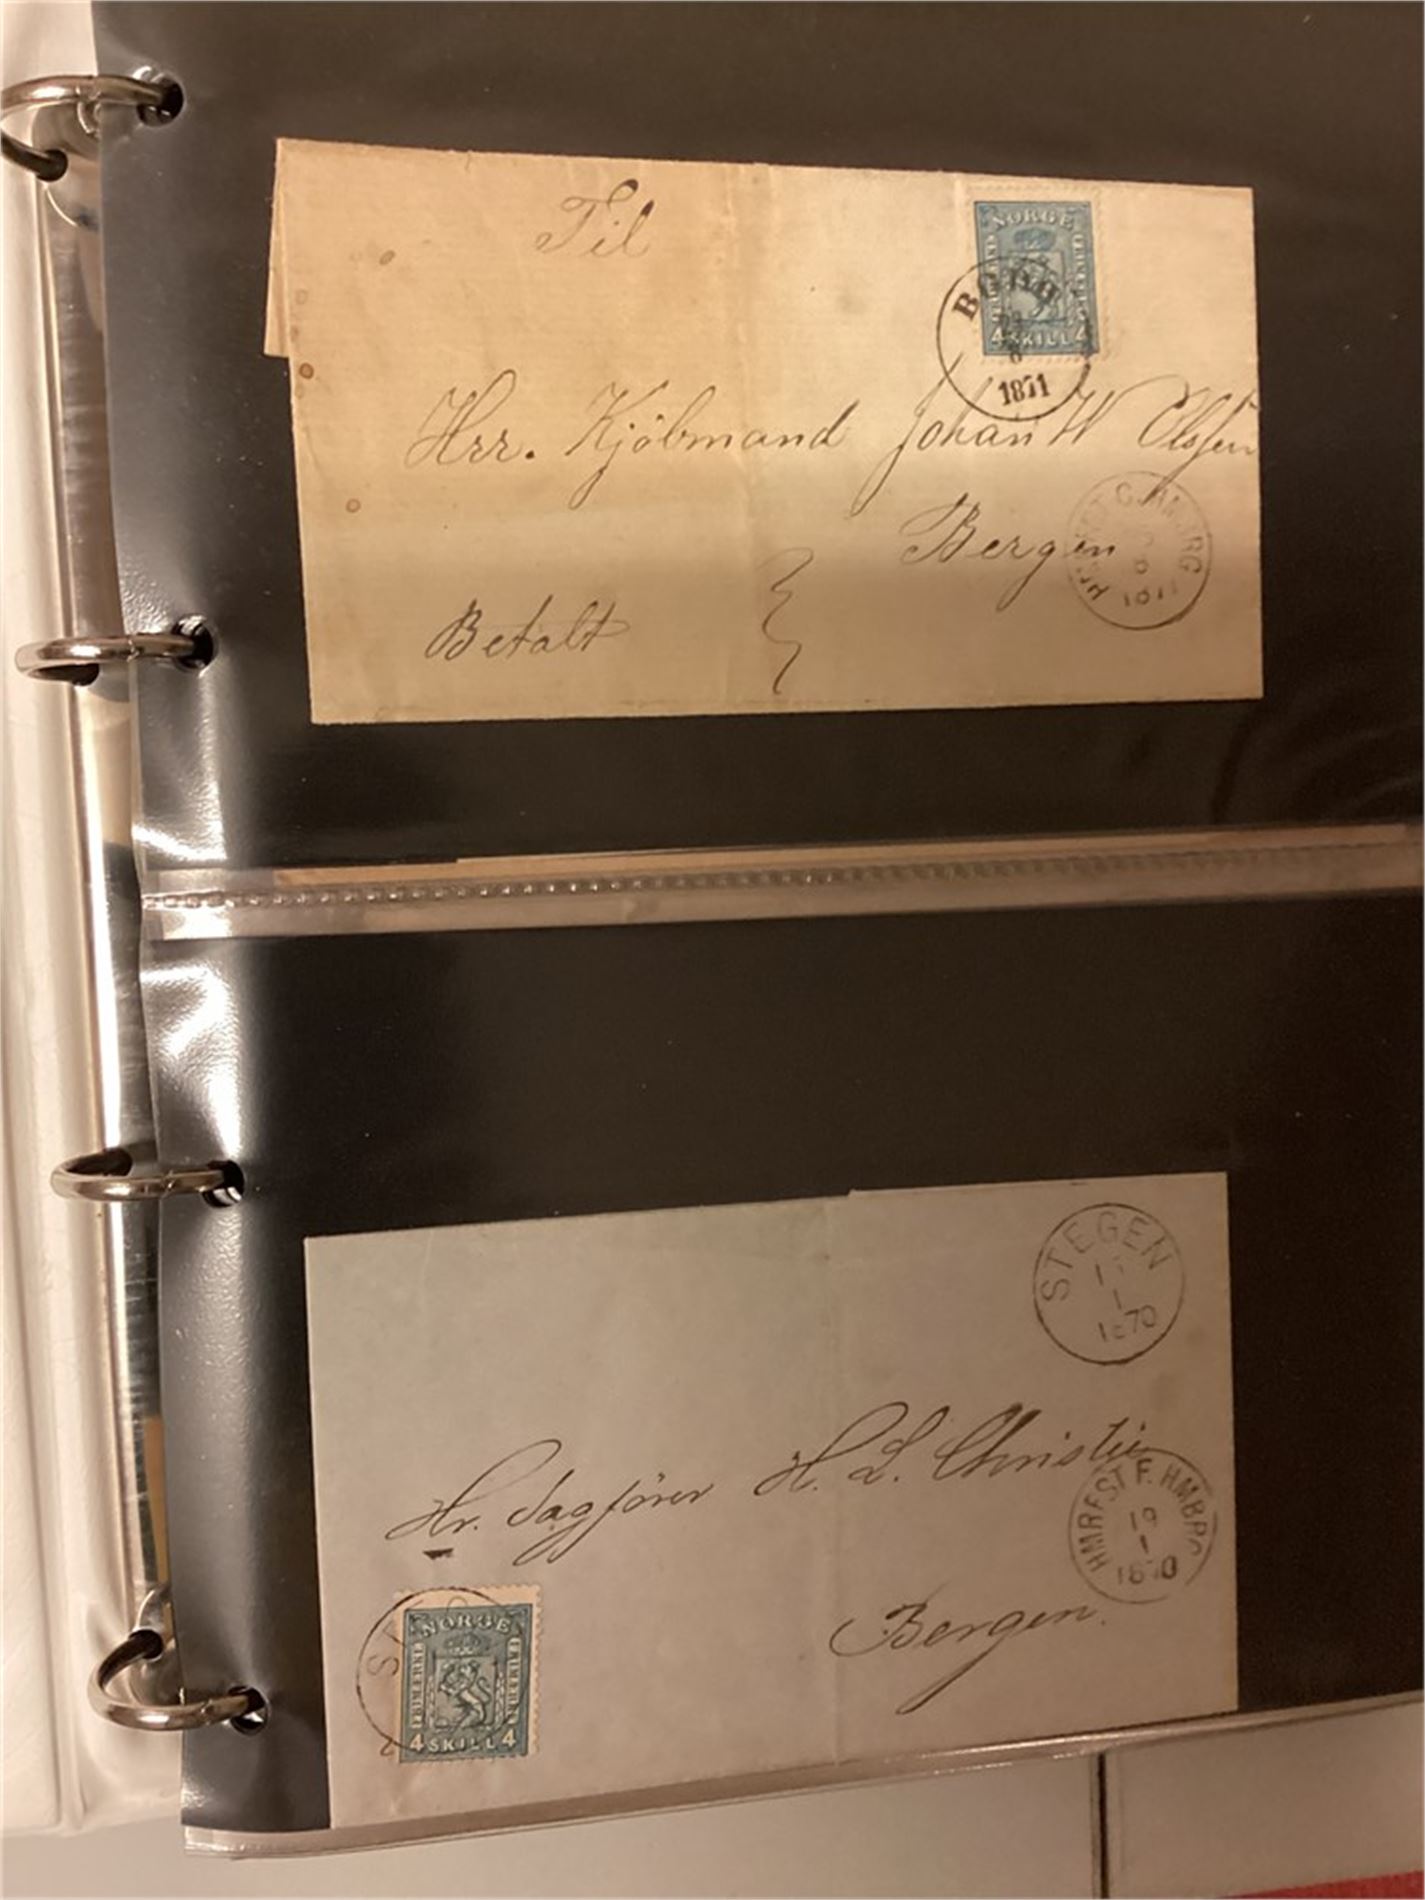 Til
NORGE
4 SKILL 4
1871
Hrr. Kjöbmand Johan W Olssen
Bergen
Betalt
STEGEN
1
1870
Hr. Sagförer H. L. Christie
HMRFST F. HMBRG
19
1
1870
Bergen.
NORGE
FRIMERKE
4 SKILL 4